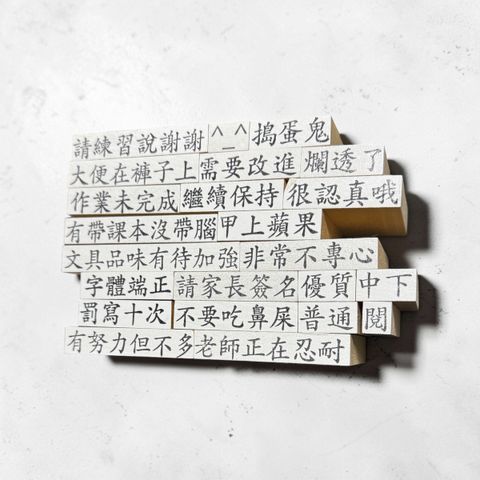 請練習說謝謝 ^_^ 搗蛋鬼
大便在褲子上 需要改進 爛透了
作業未完成 繼續保持 很認真哦
有帶課本沒帶腦 甲上蘋果
文具品味有待加強 非常不專心
字體端正 請家長簽名 優質 中下
罰寫十次 不要吃鼻屎 普通 閱
有努力但不多 老師正在忍耐